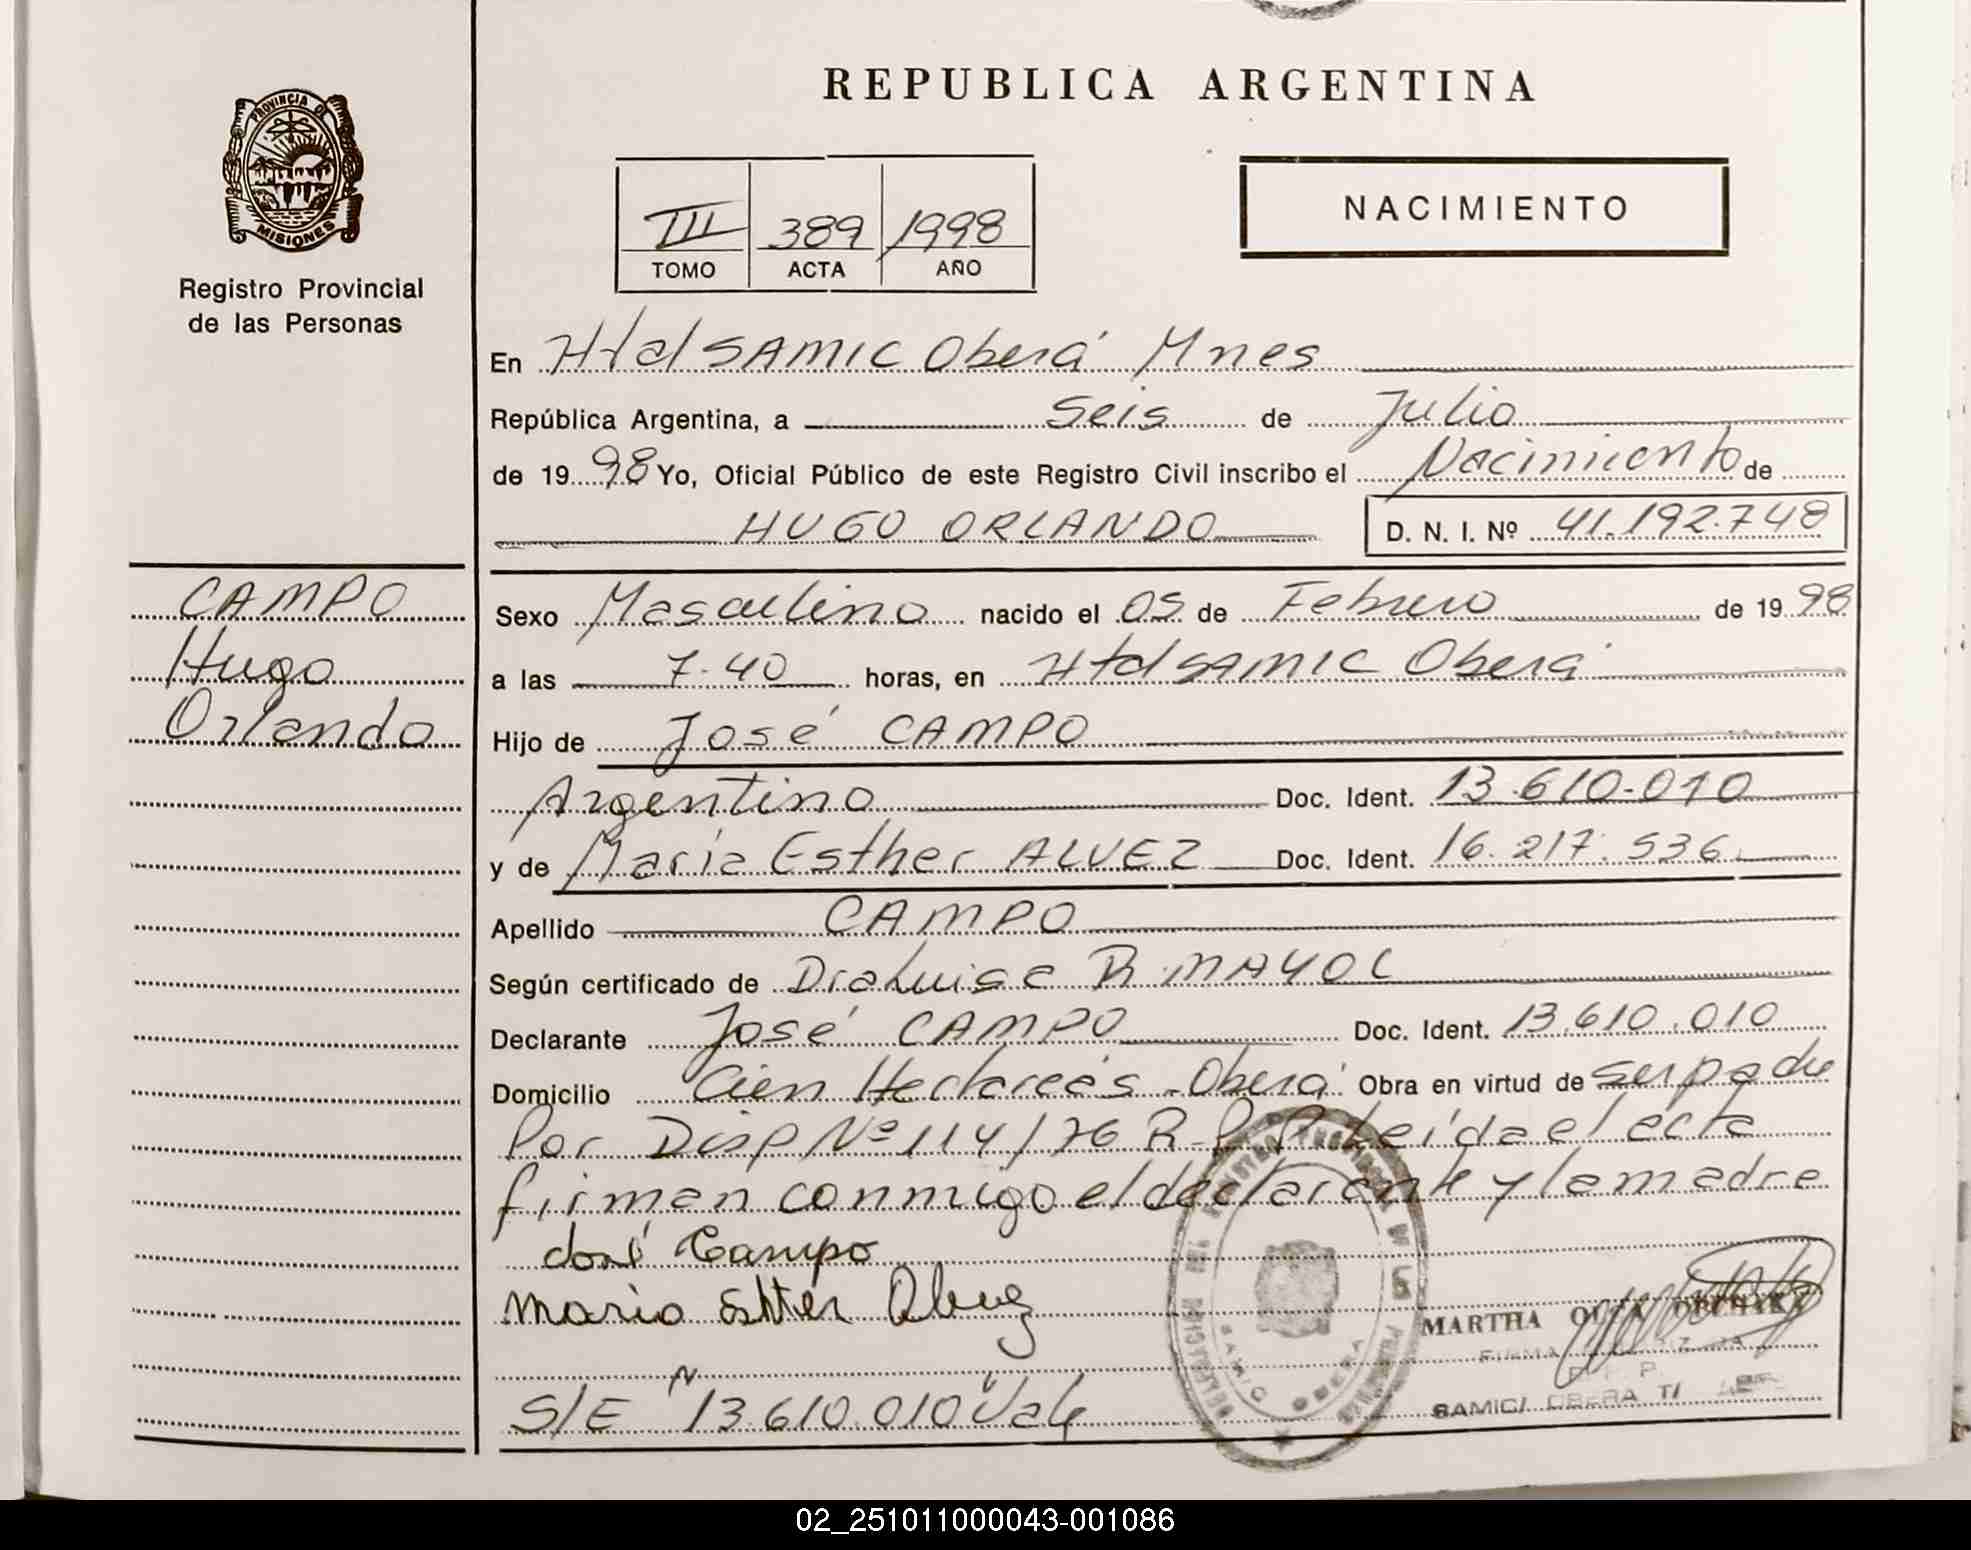 REPUBLICA ARGENTINA
PROVINCIA DE
MISIONES
Registro Provincial
de las Personas
III 389 1998
TOMO ACTA AÑO
NACIMIENTO
En Htal SAMIC Oberá Mnes
República Argentina, a seis de Julio
de 1998 Yo, Oficial Público de este Registro Civil inscribo el Nacimiento de
HUGO ORLANDO D. N. I. Nº 41.192.748
CAMPO
Hugo
Orlando
Sexo Masculino nacido el 05 de Febrero de 1998
a las 7.40 horas, en Htal SAMIC Oberá
Hijo de José CAMPO
Argentino Doc. Ident. 13.610.010
y de María Esther ALVEZ Doc. Ident. 16.217.536
Apellido CAMPO
Según certificado de Dra Luisa R. MAYOL
Declarante José CAMPO Doc. Ident. 13.610.010
Domicilio Cien Hectareas - Oberá Obra en virtud de ser padre
Por Disp Nº 114/76 R.P.P. Leída el acta
firman conmigo el declarante y la madre
José Campo
Maria Esther Alvez
MARTHA OLGA
SAMIC/ OBERA
S/E "13.610.010" Vale
02_251011000043-001086